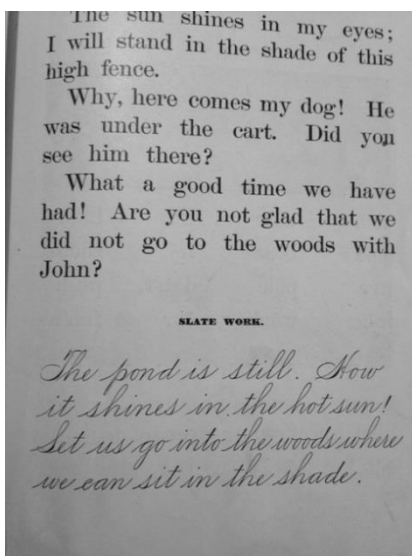 The sun shines in my eyes;
I will stand in the shade of this
high fence.
Why, here comes my dog! He
was under the cart. Did you
see him there?
What a good time we have
had! Are you not glad that we
did not go to the woods with
John?
SLATE WORK.
The pond is still. How
it shines in the hot sun!
Let us go into the woods where
we can sit in the shade.